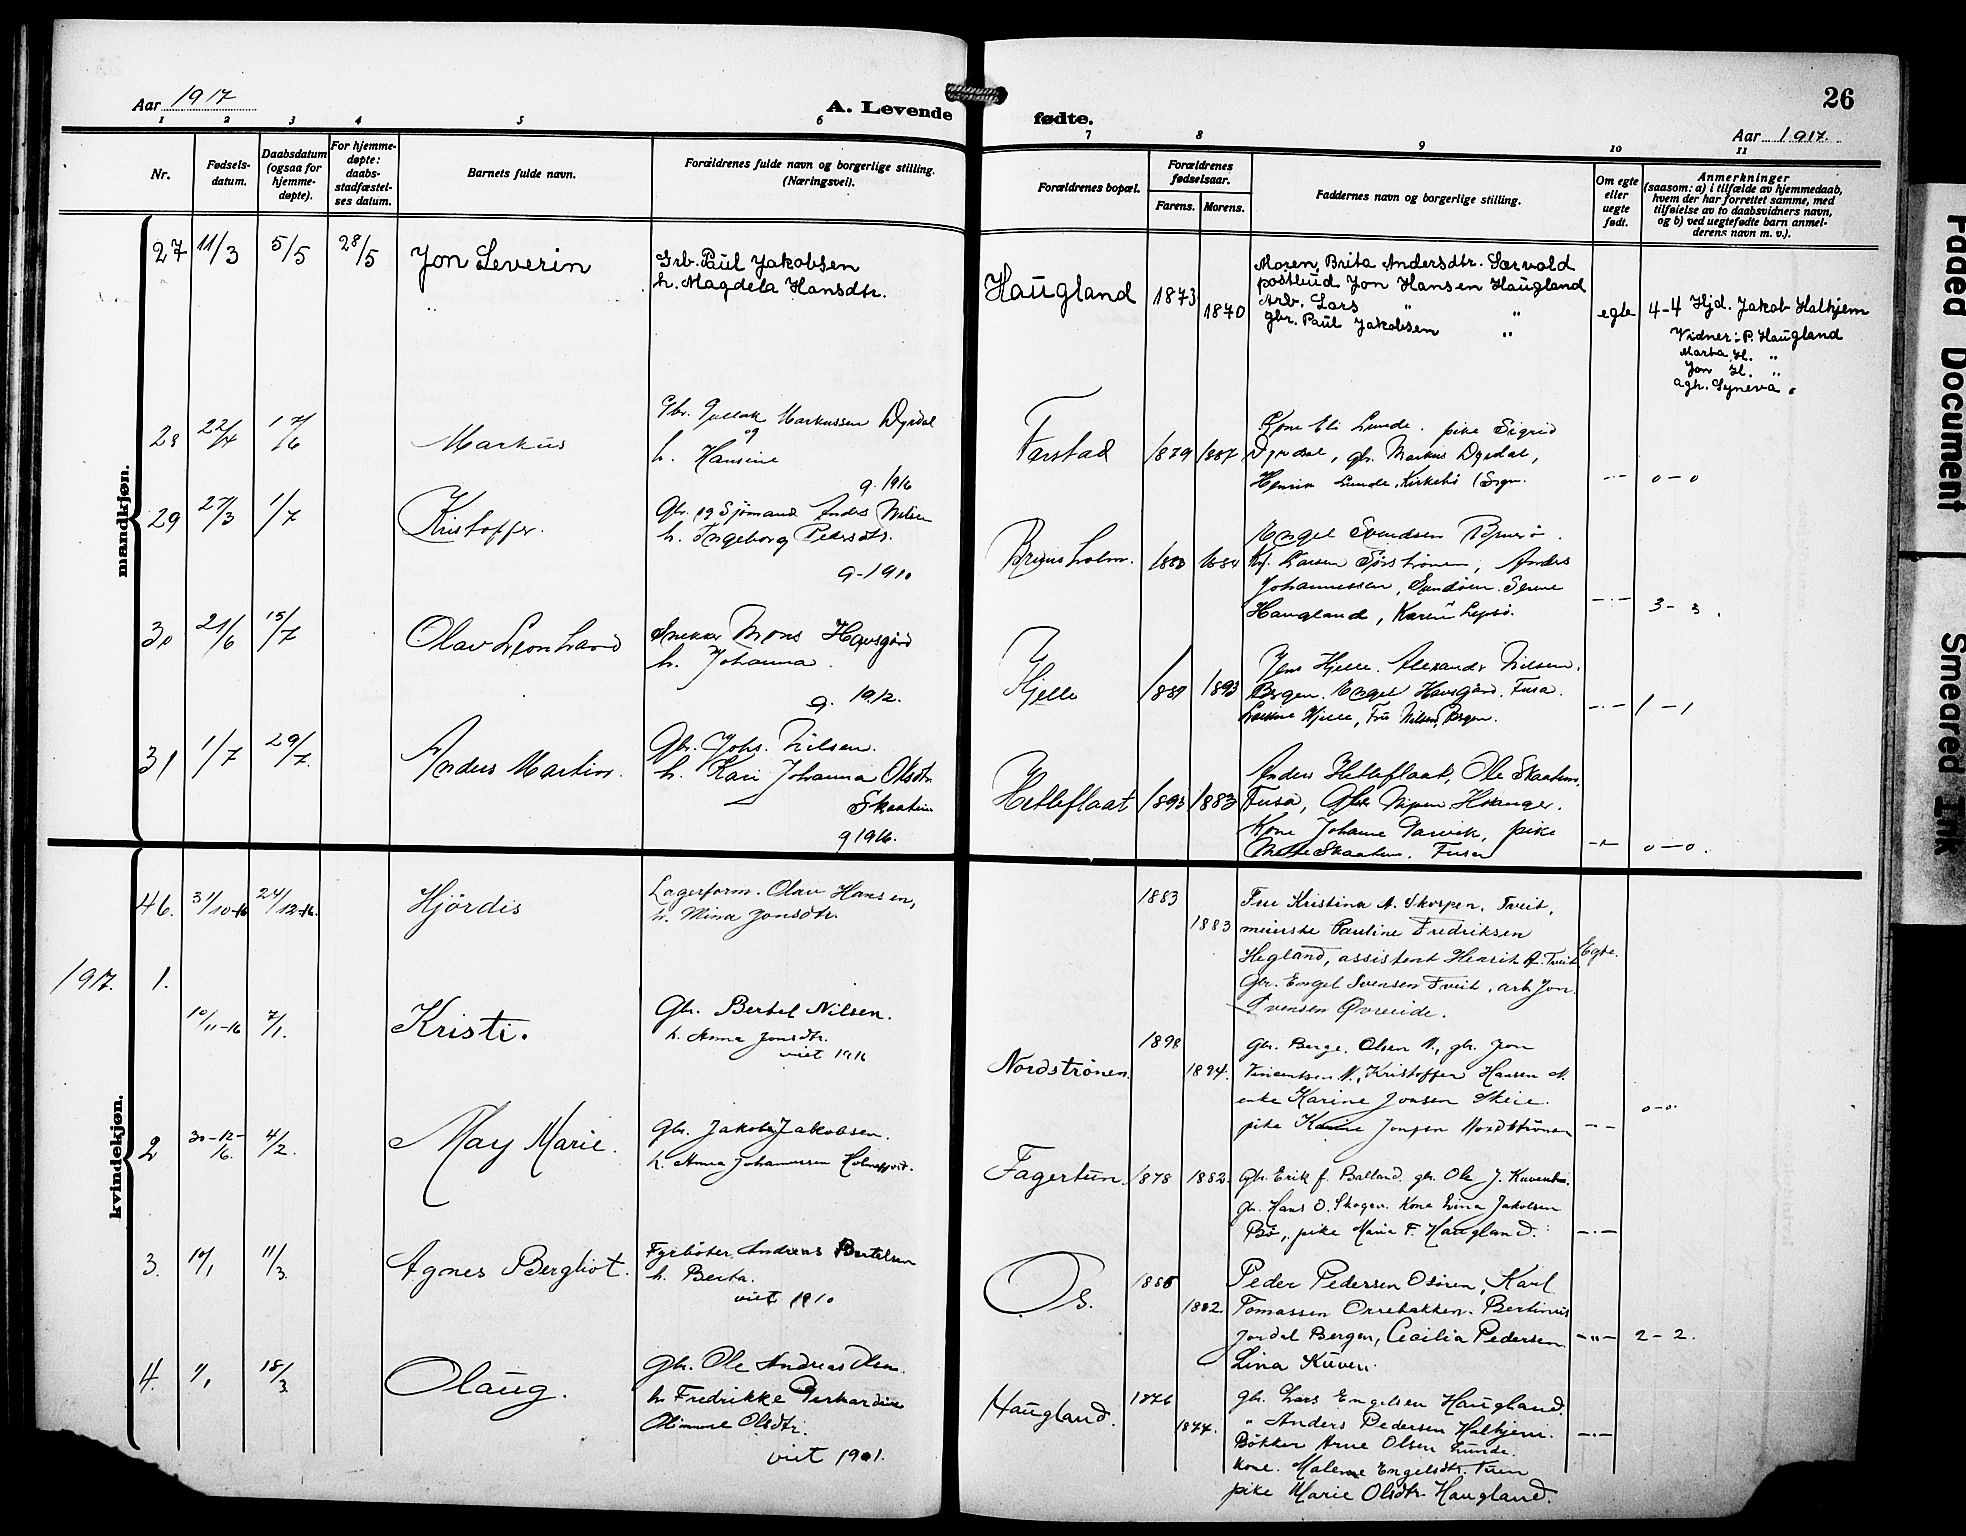 Aar 1917
A. Levende
fødte.
26
Aar 1917.
1 2 3 4 5 6 7 8 9 10 11
Nr.
Fødsels-
datum.
Daabsdatum
(ogsaa for
hjemme-
døpte).
For hjemme-
døpte:
daabs-
stadfæstel-
ses datum.
Barnets fulde navn.
Forældrenes fulde navn og borgerlige stilling.
(Næringsvei).
Forældrenes bopæl.
Forældrenes
fødselsaar.
Farens. Morens.
Faddernes navn og borgerlige stilling.
Om egte
eller
uegte
født.
Anmerkninger
(saasom: a) i tilfælde av hjemmedaab,
hvem der har forrettet samme, med
tilføielse av to daabsvidners navn,
og b) ved uegtefødte barn anmel-
derens navn m. v.).
mandkjøn.
27 11/3 5/5 28/5 Jon Severin
Grb. Paul Jakobsen
h. Magdela Hansdtr.
Haugland 1873 1870
Moren, Brita Andersdtr. Sørvold
postbud Jon Hansen Haugland
Arb. Lars " "
gbr. Paul Jakobsen "
egte 4-4 Hjd. Jakob Halhjem
Vidner: P. Haugland
Marta H. "
Jon H. "
agh. Syneva "
28 22/4 17/6 Markus
Gbr. Gullak Markussen Dyrdal
og
h. Hansine
g. 1916
Førstad 1879 1887
Kone Eli Lunde. pike Sigrid
Dyrdal, gbr. Markus Dyrdal,
Henrik Lunde, Kirkebø (Sogn.
-·- 0-0
29 27/3 1/7 Kristoffer.
Gbr. og Sjømand Anders Nilsen
h. Ingeborg Pedersdtr.
g-1910
1884
Engel Svendsen
Larsen Anders
Johannessen,
Haugland, Karen Lepsö.
-·- 3-3.
30 21/6 15/7 Olav Leonhard
Snekker Mons Havsgård
h. Johanna.
g. 1912.
Hjelle 1889 1893
Jens Hjelle. Alexander Nilsen.
Bergen. Engel Havsgård. Fusa.
Hjelle, Fru Nilsen, Bergen.
-·- 1-1
31 1/7 29/7. Anders Martin.
Gbr. Johs. Nilsen.
h. Kari Johanna Olsdtr.
Skaatun
g 1916.
Hetleflaat 1893 1883
Anders Hetleflaat, Ole Skaatun,
Fusa,
Kone Johanne pike
Mette Skaatun. Fusa
-·- 0-0.
kvindekjøn.
46. 31/10-16 24/12-16. Hjørdis
Lagerform. Olav Hansen,
h. Mina Jonsdtr.
1883 1883
Frue Kristina A. Skorpen. Tveit,
meierske Pauline Fredriksen
Hegland, assistent Henrik A. Tveit
Gbr. Engel Svensen Tveit, arb. Jon
Svensen Øvreeide.
Egte.
1917. 1.
10/11-16 7/1. Kristi.
Gbr. Bertel Nilsen.
h. Anna Jonsdtr.
viet 1916
Nordstrønen. 1898 1894.
Gbr. Berge. Olsen N., gbr. Jon
Vincentsen N., Kristoffer Hansen N.
enke Karine Jonsen Skeie.
pike Jonsen Nordstrønen
-·- 0-0.
2 30-12-16. 4/2. May Marie.
Gbr. Jakob Jakobsen.
h. Anna Johannessen Holmefjord.
Fagertun. 1878 1882.
Gbr. Erik f. Balland. gbr. Ole J. Kuven
gbr. Hans O. Skogen. Kone Jakobsen
Bö., pike Maria F. Haugland.
-·-
3. 10/1 11/3 Agnes Bergliot.
Fyrböter Andreas Bertelsen
h. Berta.
viet 1910
Os. 1885 1882.
Peder Pedersen Osören, Karl
Tomassen Orrebakken. Bertinus
Jordal Bergen, Cecilia Pedersen
Lina Kuven.
-"- 2-2.
4. 1/1 18/3 Olaug.
Gbr. Ole Andreas Olsen.
h. Fredrikke Gerhardine
Olsdtr.
viet 1901.
Haugland. 1876 1874.
Gbr. Lars Engelsen Haugland.
" Anders Pedersen Halhjem.
Bökker Arne Olsen Lunde.
Kone. Malene Engelsdtr. Tuen
pike Marie Olsdtr. Haugland.
-·-
Faded Document
Smeared Ink